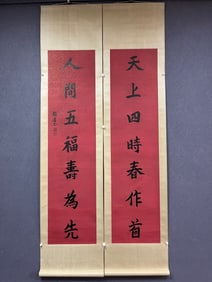 天上四時春作首
人間五福壽為先